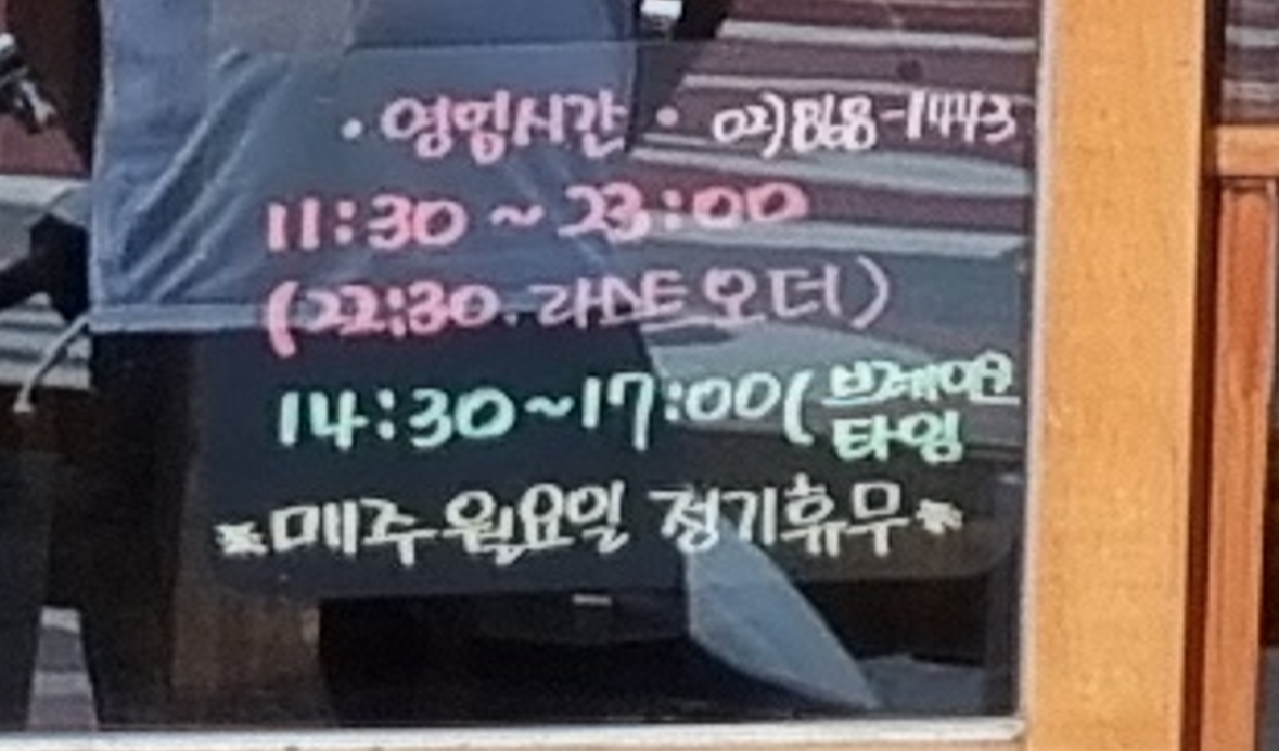 · 영업시간 · 02)868-1443
11:30 ~ 23:00
(22:30. 라스트 오더)
14:30~17:00(브레이크
타임
*매주 월요일 정기휴무*